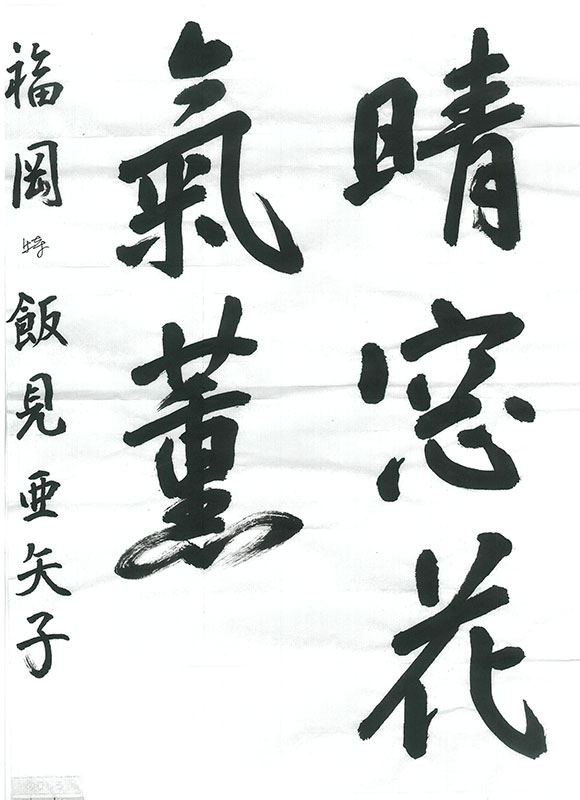 晴窓花
氣薫
福岡 特 飯見亜矢子